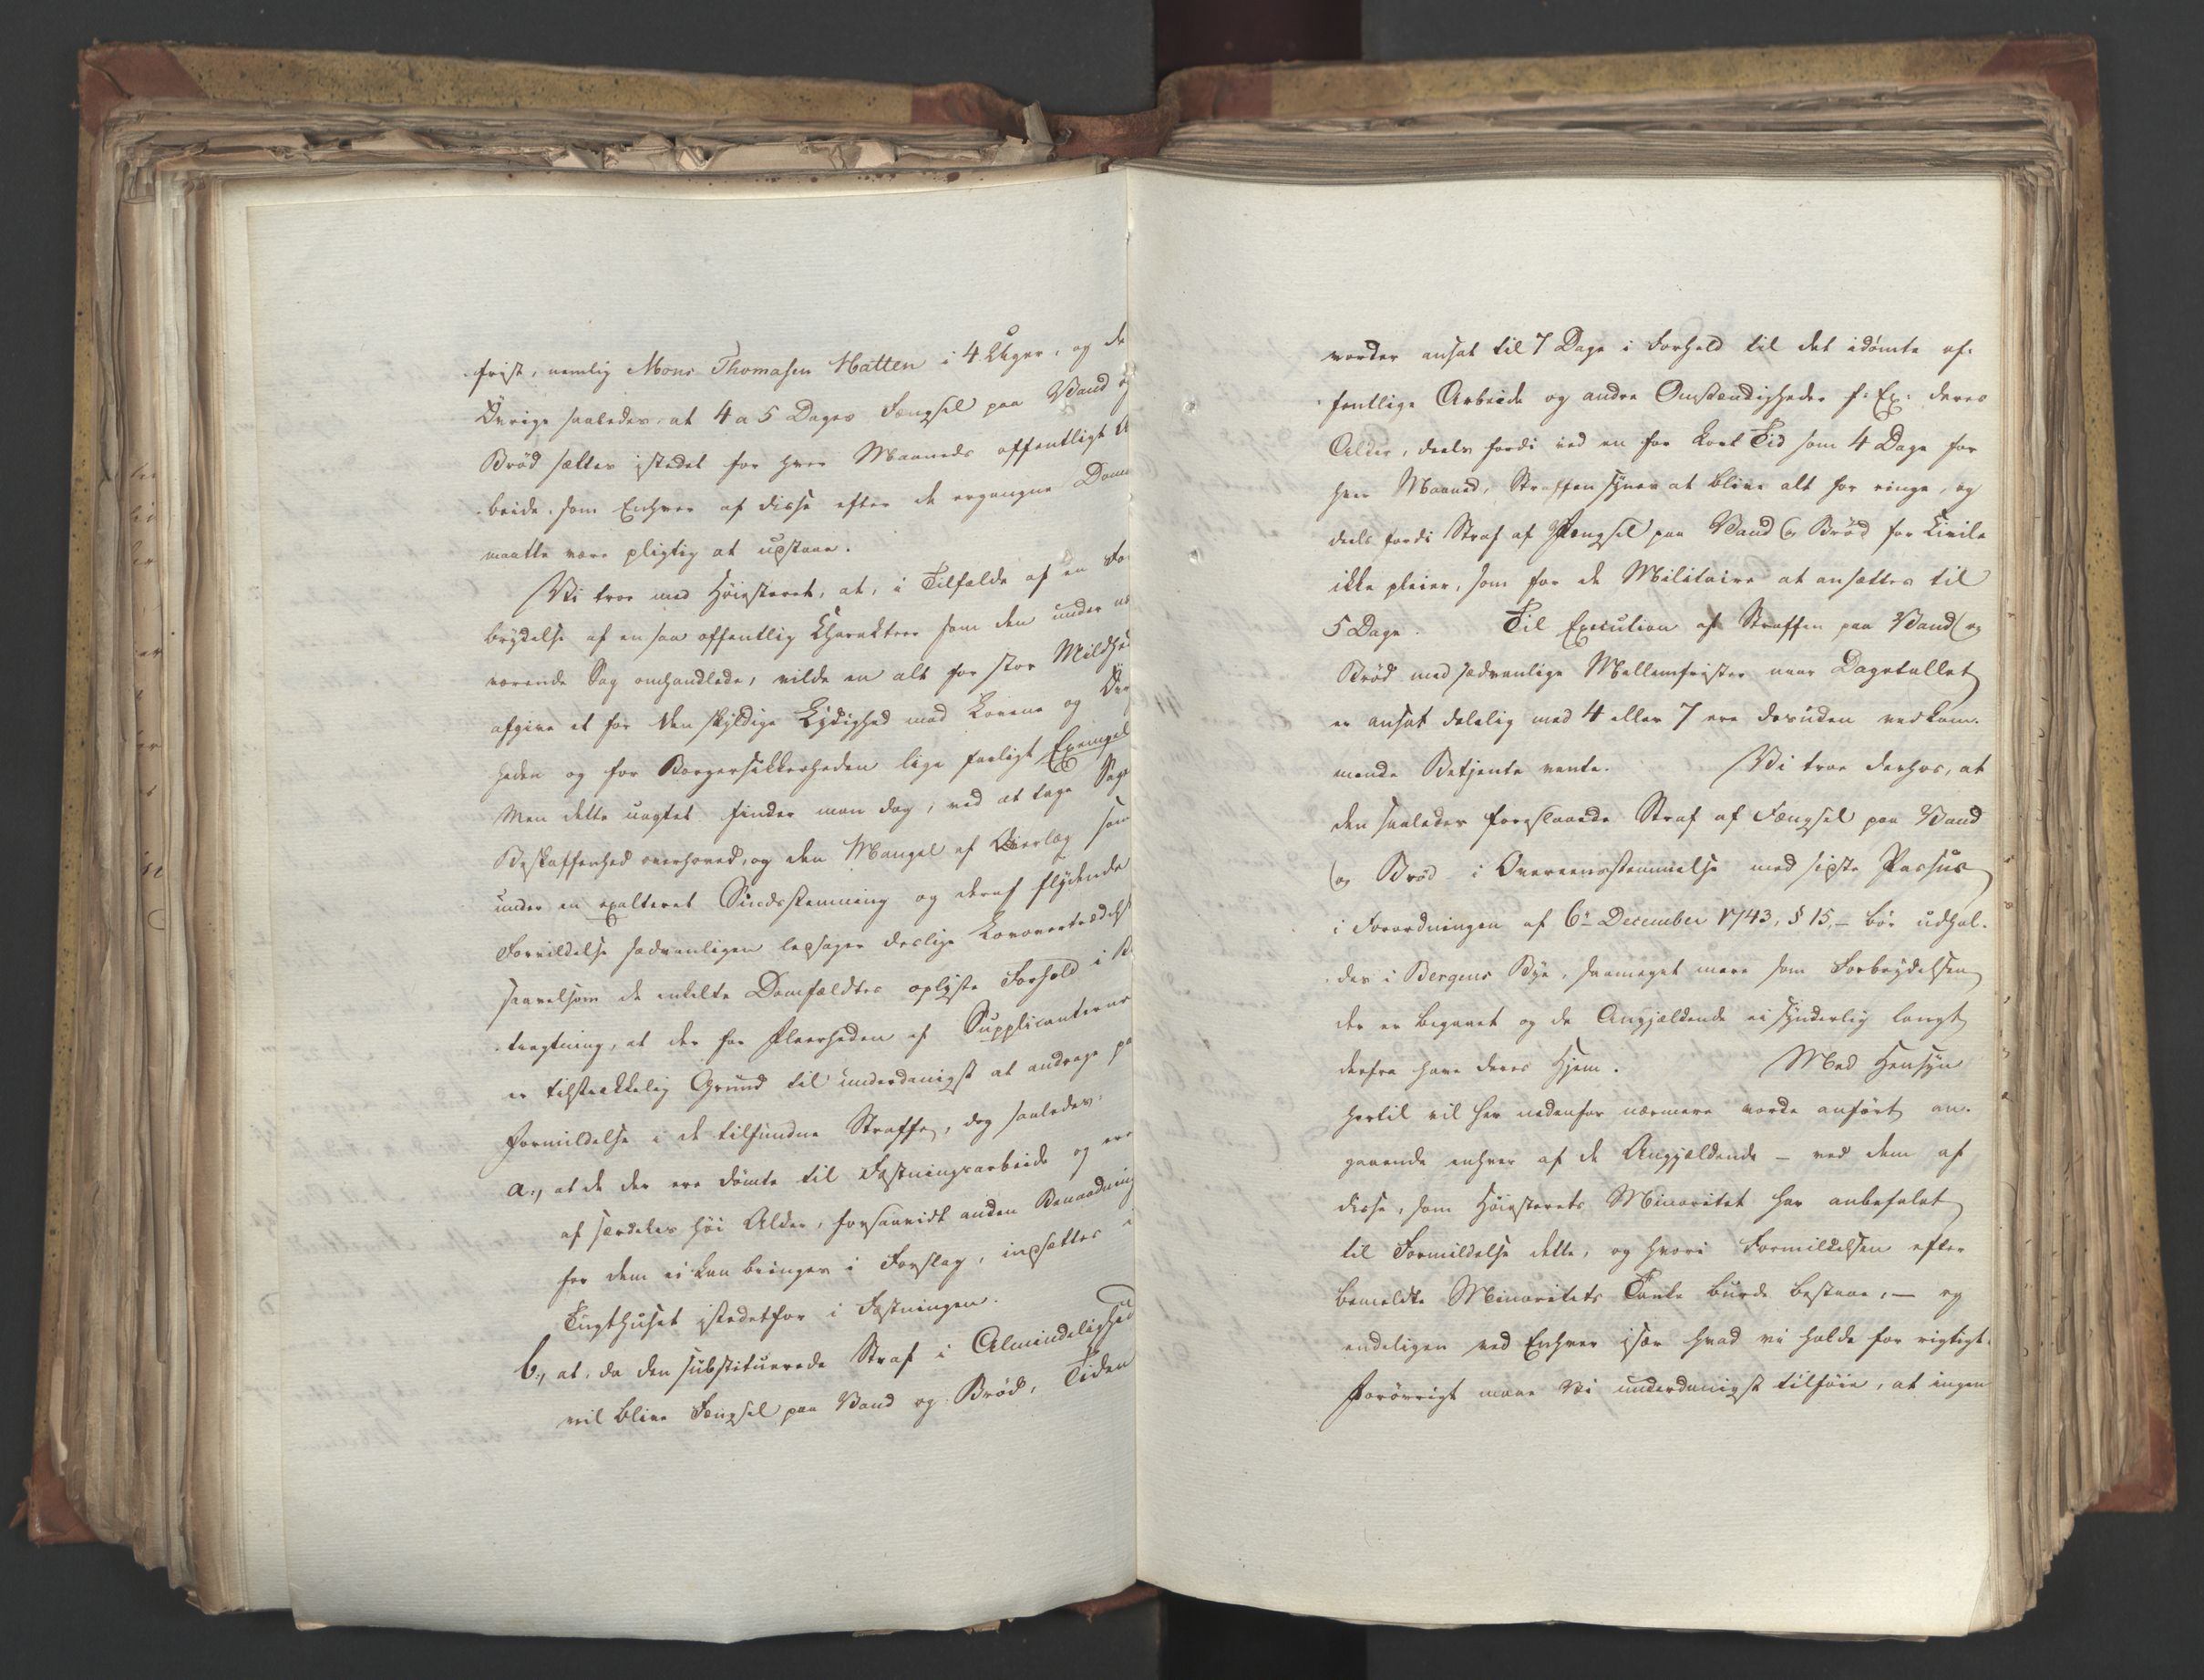 frist, nemlig Mons Thomasen Hatten i 4 Uger, og de
Øvrige saaledes at 4 a 5 Dages Fængsel paa Vand og
Brød sættes istedet for hver Maaneds offentligt Ar
beide, som Enhver af disse efter de ergangne Domme
maatte være pligtig at udstaae.
Vi troe med Høiesteret, at, i Tilfælde af en For
brydelse af en saa offentlig Charakteer som den under nær
værende Sag omhandlede, vilde en alt for stor Mildhed
afgive et for den skyldige Lydighed mod Lovene og
heden og for Borgersikkerheden lige farligt Exempel
Men dette uagtet finder man dog, ved at tage Sagens
Beskaffenhed overhoved, og den Mangel af Overlæg som
under en exalteret Sindsstemning og deraf flydende
Forvildelse sædvanligen ledsager deslige Lovovertrædelser
saavelsom de enkelte Domfældtes oplyste Forhold i Be
tragtning, at der for Fleerheden af Supplicanterne
er tilstrækkelig Grund til underdanigst at andrage paa
Formildelse i de tilfundne Straffe, dog saaledes:
a., at de der ere dømte til Fæstningsarbeide og ere
af særdeles høi Alder, forsaavidt anden Benaadning
for dem ei kan bringes i Forslag, indsættes i
Tugthuset istedetfor i Fæstningen.
b., at, da den substituerede Straf i Almindelighed
vil blive Fængsel paa Vand og Brød, Tiden
vorder ansat til 7 Dage i Forhold til det idømte of-
fentlige Arbeide og andre Omstændigheder f. Ex. deres
Alder, deels fordi ved en for kort Tid som 4 Dage for
hver Maaned, Straffen synes at blive alt for ringe, og
deels fordi Straf af Fængsel paa Vand og Brød for Civile
ikke pleier, som for de Militaire at ansættes til
5 Dage. Til Execution af Straffen paa Vand og
Brød med sædvanlige Mellemfrister naar Dagetallet
er ansat delelig med 4 eller 7 ere desuden vedkom-
mende Betjente vante. Vi troe derhos, at
den saaledes foreslaaede Straf af Fængsel paa Vand
og Brød i Overeensstemmelse med sidste Passus
i Forordningen af 6te December 1743, § 15, - bør udhol-
des i Bergens Bye, saameget mere som Forbrydelsen
der er begaaet og de Angjældende ei synderlig langt
derfra have deres Hjem. Med Hensyn
hertil vil her nedenfor nærmere vorde anført an-
gaaende enhver af de Angjældende - ved dem af
disse, som Høiesterets Minoritet har anbefalet
til Formildelse dette, og hvori Formildelsen efter
bemeldte Minoritets Tanke burde bestaae, - og
endeligen ved Enhver især hvad vi holde for rigtigt.
Forøvrigt maae Vi underdanigst tilføie, at ingen